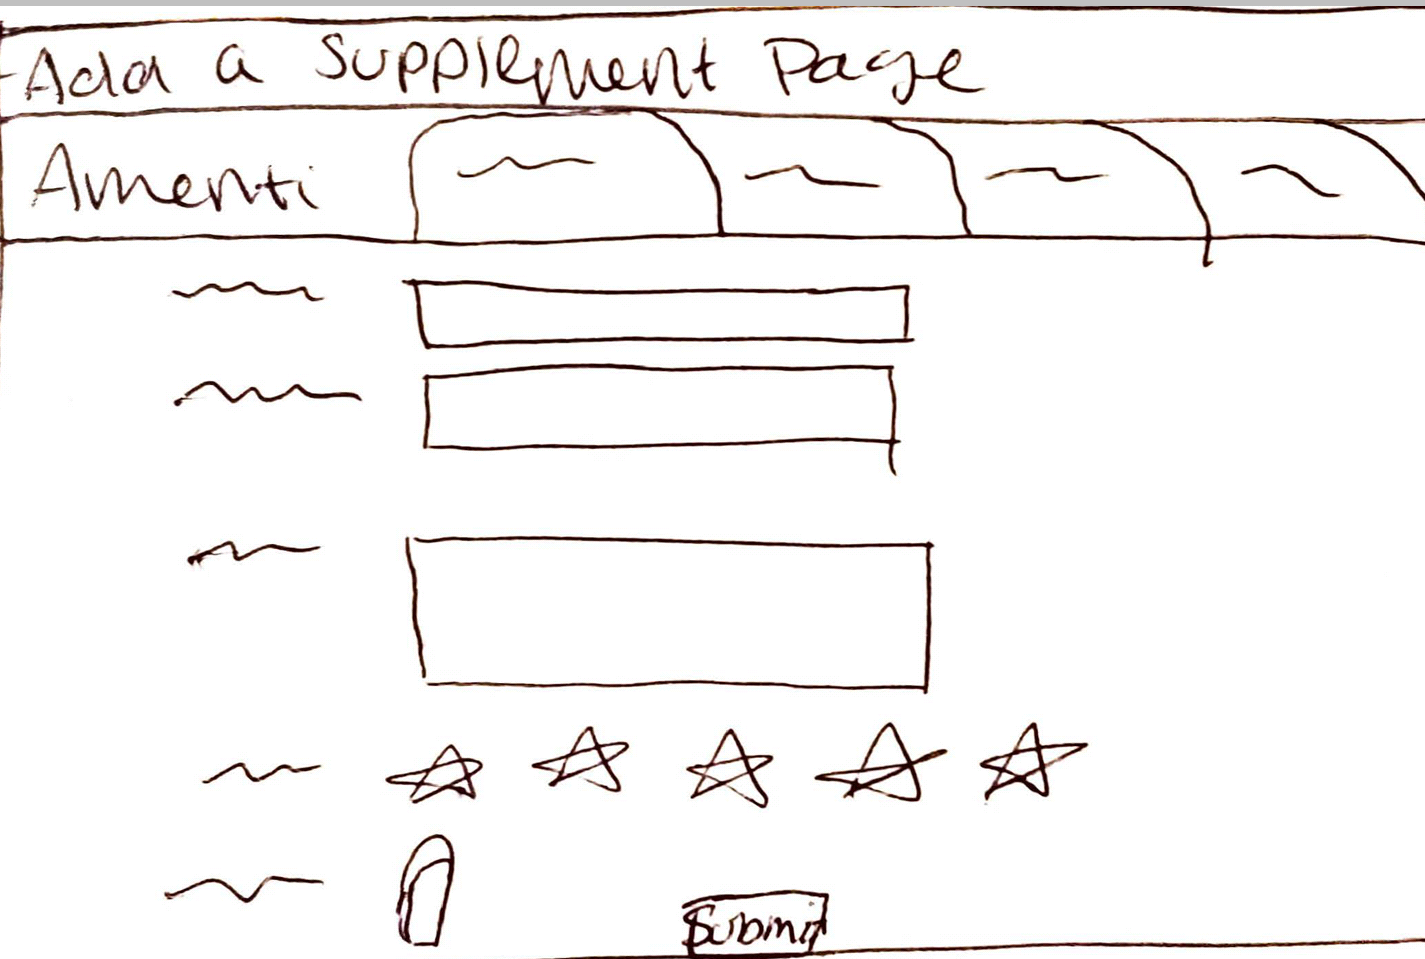 Add a Supplement Page
Amenti
Submit